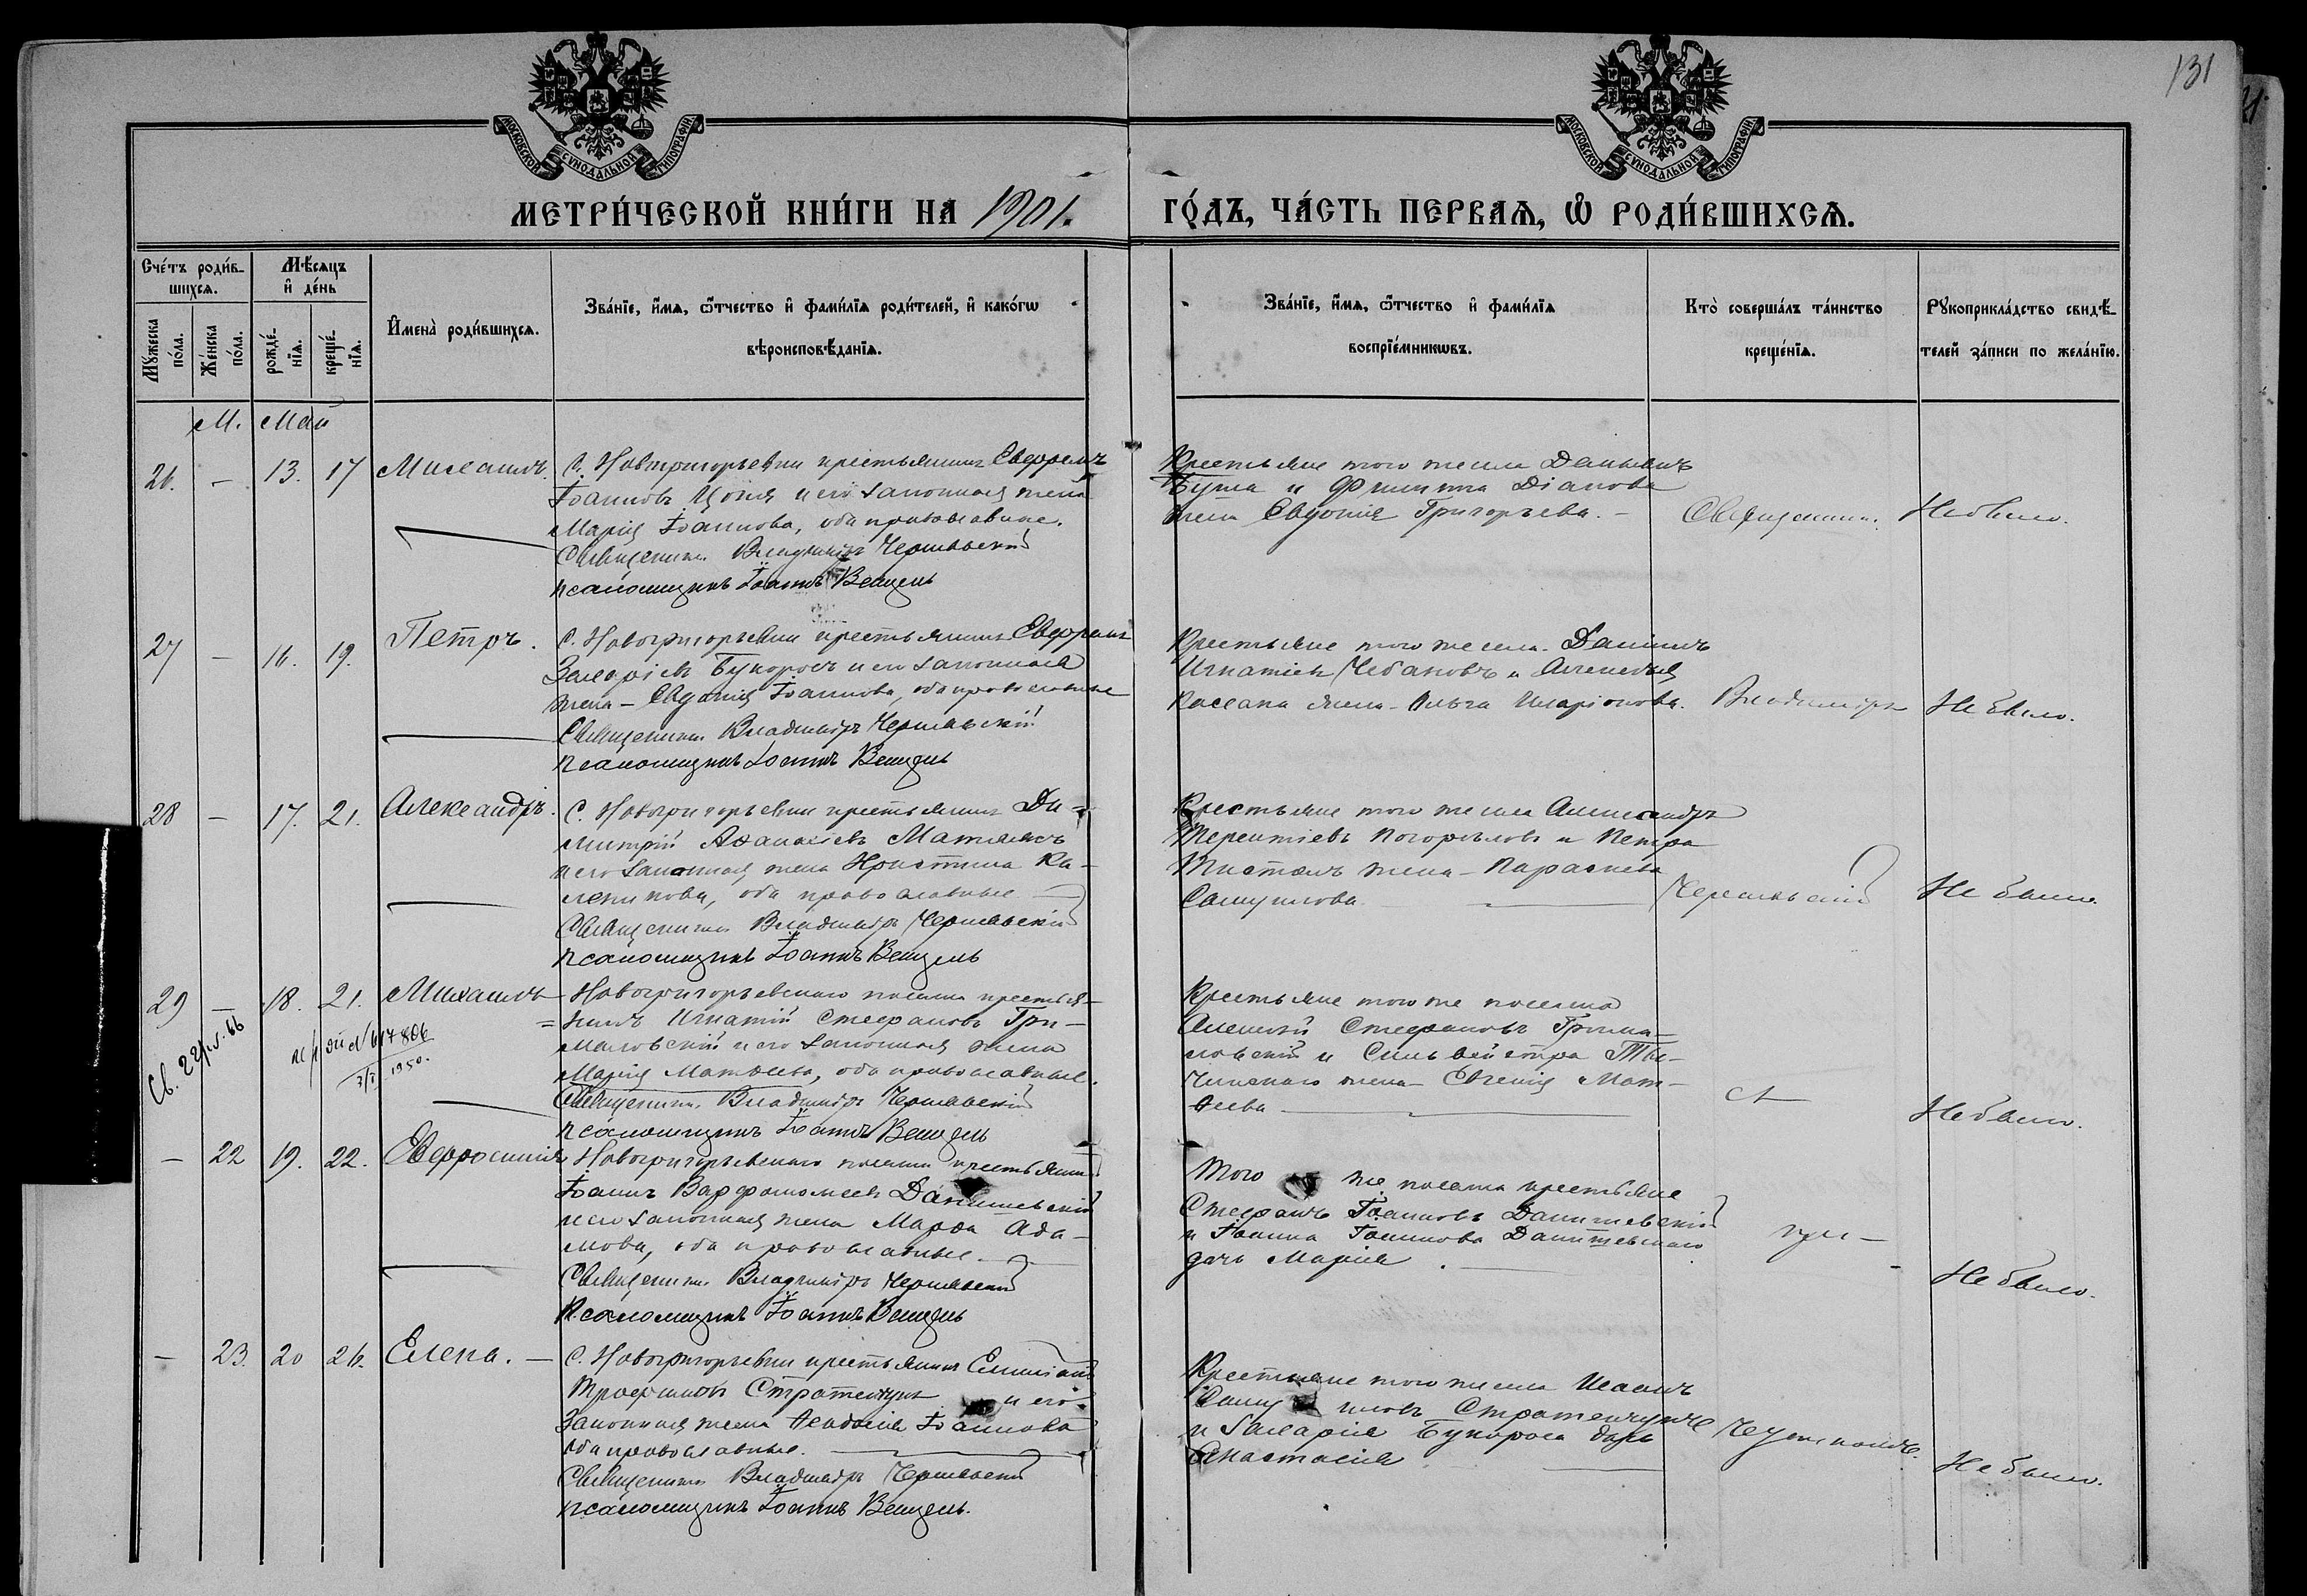 131
МОСКОВСКОЙ СѴНОДАЛЬНОЙ ТИПОГРАФІИ
МОСКОВСКОЙ СѴНОДАЛЬНОЙ ТИПОГРАФІИ
МЕТРИ́ЧЕСКОЙ КНИ́ГИ НА 1901. ГО́ДЪ, ЧА́СТЬ ПЕРВАѦ, Ѡ҆ РОДИ́ВШИХСѦ.
Сче́тъ роди́в-
шихсѧ.
Мꙋжеска по́ла.
Же́нска по́ла.
Мѣ́сѧцъ
и҆ де́нь
рожде́-нїѧ.
креще́-нїѧ.
И҆мена̀ роди́вшихсѧ.
Зва́нїе, и҆́мѧ, ѻ҆́тчество и҆ фами́лїѧ роди́телей, и҆ како́гѡ
вѣроисповѣ́данїѧ.
Зва́нїе, и҆́мѧ, ѻ҆́тчество и҆ фами́лїѧ
воспрїе́мникѡвъ.
Кто̀ соверша́лъ та́инство
креще́нїѧ.
Рꙋкоприкла́дство свидѣ́-
телей за́писи по жела́нїю.
М. Май
26. – 13. 17 Михаилъ.
С. Новогригорьевки крестьянинъ Евфремъ
Іоанновъ и его законная жена
Марія Іоаннова, оба православные.
Священникъ Владиміръ Чернявскій
псаломщикъ Іоаннъ Венцель
Крестьяне того же села
и Филиппа Діанова
жена Евдокія Григорьева. –
Священник.
Не было.
27 – 16. 19. Петръ.
С. Новогригорьевки крестьянинъ Евфремъ
Захаріевъ Букоросъ и его законная
жена – Евдокія Іоаннова, оба православные
Священникъ Владиміръ Чернявскій
псаломщикъ Іоаннъ Венцель
Крестьяне того же села Даніилъ
Игнатіевъ Чебановъ и Алексѣя
жена – Ольга Иларіонова.
Владиміръ
Не было.
28 – 17. 21. Александръ.
С. Новогригорьевки крестьянинъ Ди=
митрій Аѳанасіевъ
и его законная жена Христина Ка-
леникова, оба православные
Священникъ Владиміръ Чернявскій
псаломщикъ Іоаннъ Венцель
Крестьяне того же села Александръ
Терентіевъ Погорѣловъ и Петра
жена – Параскева
Самуилова.
Чернявскій
Не было.
29 – 18. 21. Михаилъ
Новогригорьевскаго поселка крестья-
=нинъ Игнатій Стефановъ Гри-
маловскій и его законная жена
Марія Матѳеева, оба православные.
Священникъ Владиміръ Чернявскій
псаломщикъ Іоаннъ Венцель
Крестьяне того же поселка
Алексѣй Стефановъ Грима-
ловскій и Сильвестра
жена – Евгенія Мат-
ѳеева
съ
Не было.
1950.
– 22 19. 22. Евфросинія
Новогригорьевскаго поселка крестьянинъ
Іоаннъ Варфоломеевъ Данишевскій
и его законная жена Марѳа Ада-
мова, оба православные.
Священникъ Владиміръ Чернявскій
Псаломщикъ Іоаннъ Венцель
Того же поселка крестьяне
Стефанъ Іоанновъ Данишевскій
и Іоанна Іоаннова Данишевскаго
дочь Марія.
при-
Не было.
– 23. 20 26. Елена. –
С. Новогригорьевки крестьянинъ Емиліанъ
Трофимовъ Стратейчукъ и его
законная жена Ѳеодосія Іоаннова
оба православные.
Священникъ Владиміръ Чернявскій
псаломщикъ Іоаннъ Венцель.
Крестьяне того же села Исаакъ
Самуиловъ Стратейчукъ
и Захарія Букороса дочь
Анастасія
Не было.